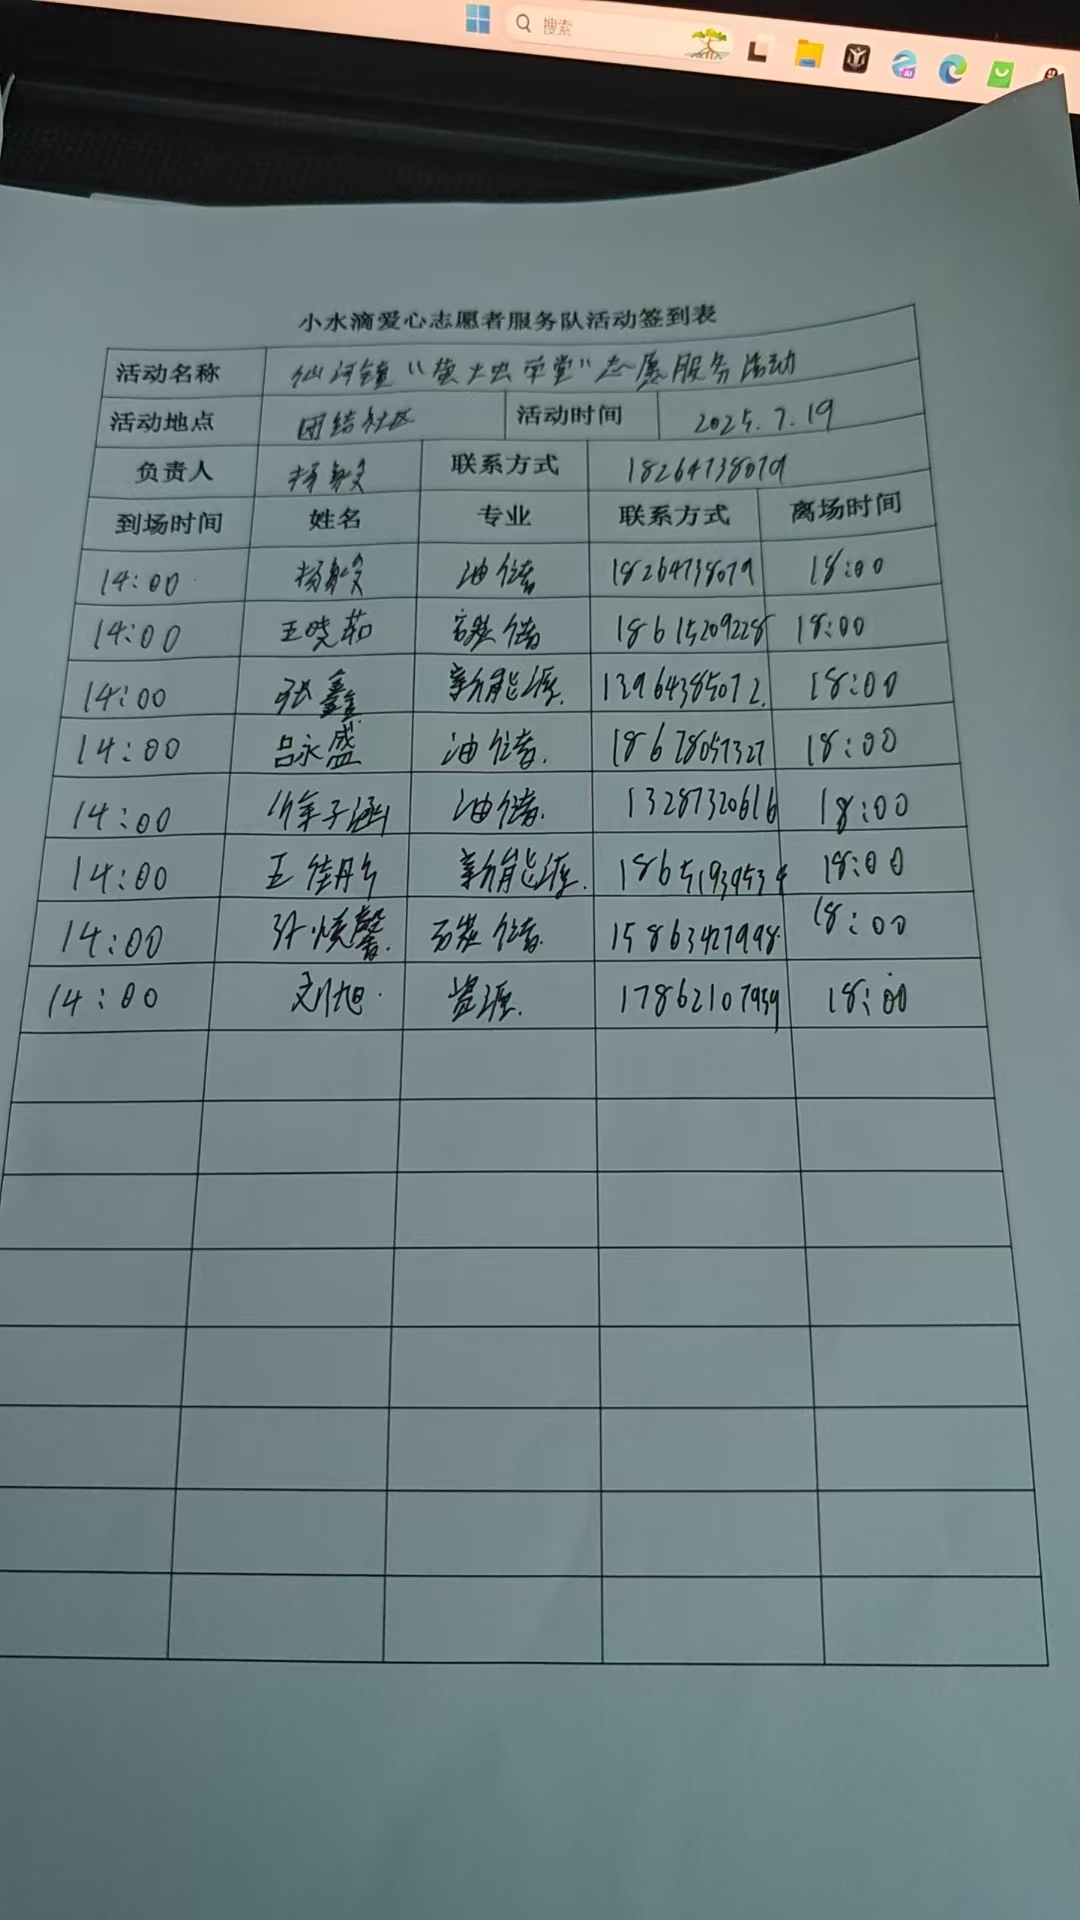 搜索
小水滴爱心志愿者服务队活动签到表
活动名称 仙河镇“萤火虫学堂”志愿服务活动
活动地点 团结社区 活动时间 2025.7.19
负责人 杨毅 联系方式 18264738079
到场时间 姓名 专业 联系方式 离场时间
14:00 杨毅 油储 18264738079 18:00
14:00 王晓茹 碳储 18615209228 18:00
14:00 张鑫 新能源 13964385072 18:00
14:00 吕永盛 油储 18678057327 18:00
14:00 子涵 油储 13287320616 18:00
14:00 王佳彤 新能源 18:00
14:00 碳储 15863427998 18:00
14:00 刘旭 资源 17862107939 18:00